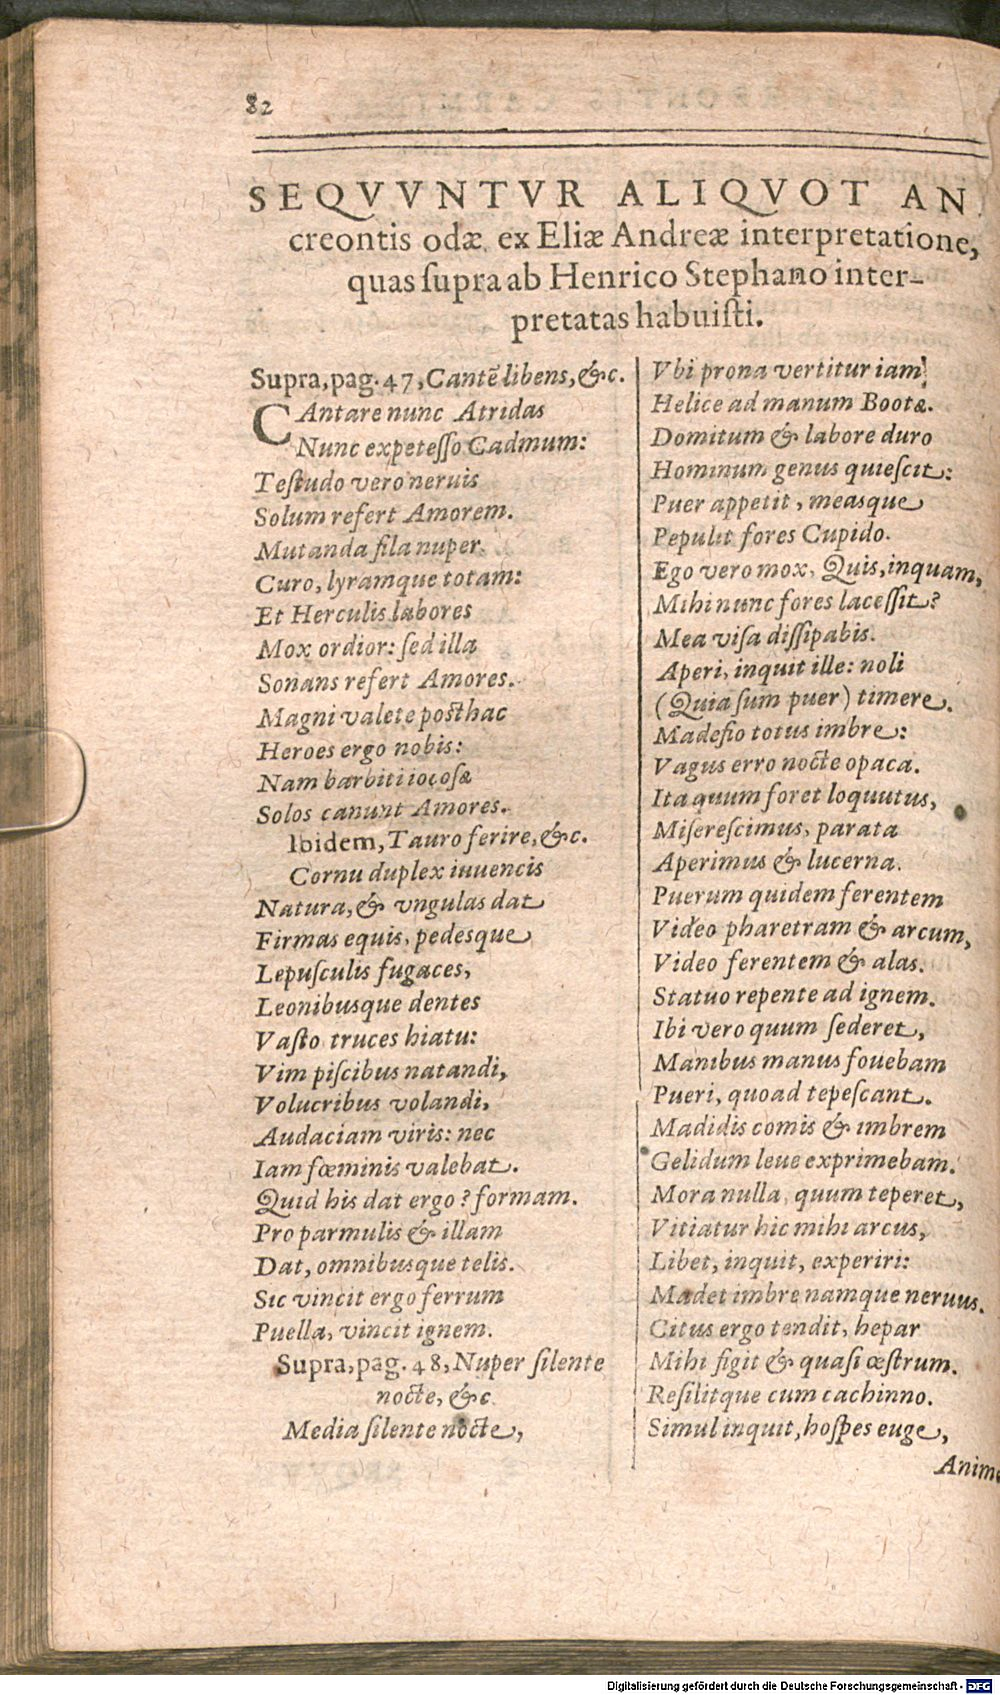 82
SEQVVNTVR ALIQVOT AN
creontis odæ ex Eliæ Andreæ interpretatione,
quas ſupra ab Henrico Stephano inter-
pretatas habuiſti.
Supra, pag. 47, Cantē libens, &c.
CAntare nunc Atridas
Nunc expeteſſo Cadmum:
Teſtudo vero neruis
Solum refert Amorem.
Mutanda fila nuper
Curo, lyramque totam:
Et Herculis labores
Mox ordior: ſed illa
Sonans refert Amores.
Magni valete poſthac
Heroes ergo nobis:
Nam barbiti iocoſæ
Solos canunt Amores.
Ibidem, Tauro ferire, &c.
Cornu duplex iuuencis
Natura, & vngulas dat
Firmas equis, pedesque
Lepuſculis fugaces,
Leonibusque dentes
Vaſto truces hiatu:
Vim piſcibus natandi,
Volucribus volandi,
Audaciam viris: nec
Iam fœminis valebat.
Quid his dat ergo? formam.
Pro parmulis & illam
Dat, omnibusque telis.
Sic vincit ergo ferrum
Puella, vincit ignem.
Supra, pag. 48, Nuper ſilente
nocte, &c
Media ſilente nocte,
Vbi prona vertitur iam
Helice ad manum Bootæ.
Domitum & labore duro
Hominum genus quieſcit:
Puer appetit, measque
Pepulit fores Cupido.
Ego vero mox, Quis, inquam,
Mihi nunc fores laceſſit?
Mea viſa diſſipabis.
Aperi, inquit ille: noli
(Quia ſum puer) timere.
Madefio totus imbre:
Vagus erro nocte opaca.
Ita quum foret loquutus,
Miſereſcimus, parata
Aperimus & lucerna.
Puerum quidem ferentem
Video pharetram & arcum,
Video ferentem & alas.
Statuo repente ad ignem.
Ibi vero quum ſederet,
Manibus manus fouebam
Pueri, quoad tepeſcant.
Madidis comis & imbrem
Gelidum leue exprimebam.
Mora nulla, quum teperet,
Vitiatur hic mihi arcus,
Libet, inquit, experiri:
Madet imbre namque neruus.
Citus ergo tendit, hepar
Mihi figit & quaſi œſtrum.
Reſilitque cum cachinno.
Simul inquit, hoſpes euge,
Anime
Digitalisierung gefördert durch die Deutsche Forschungsgemeinschaft - DFG